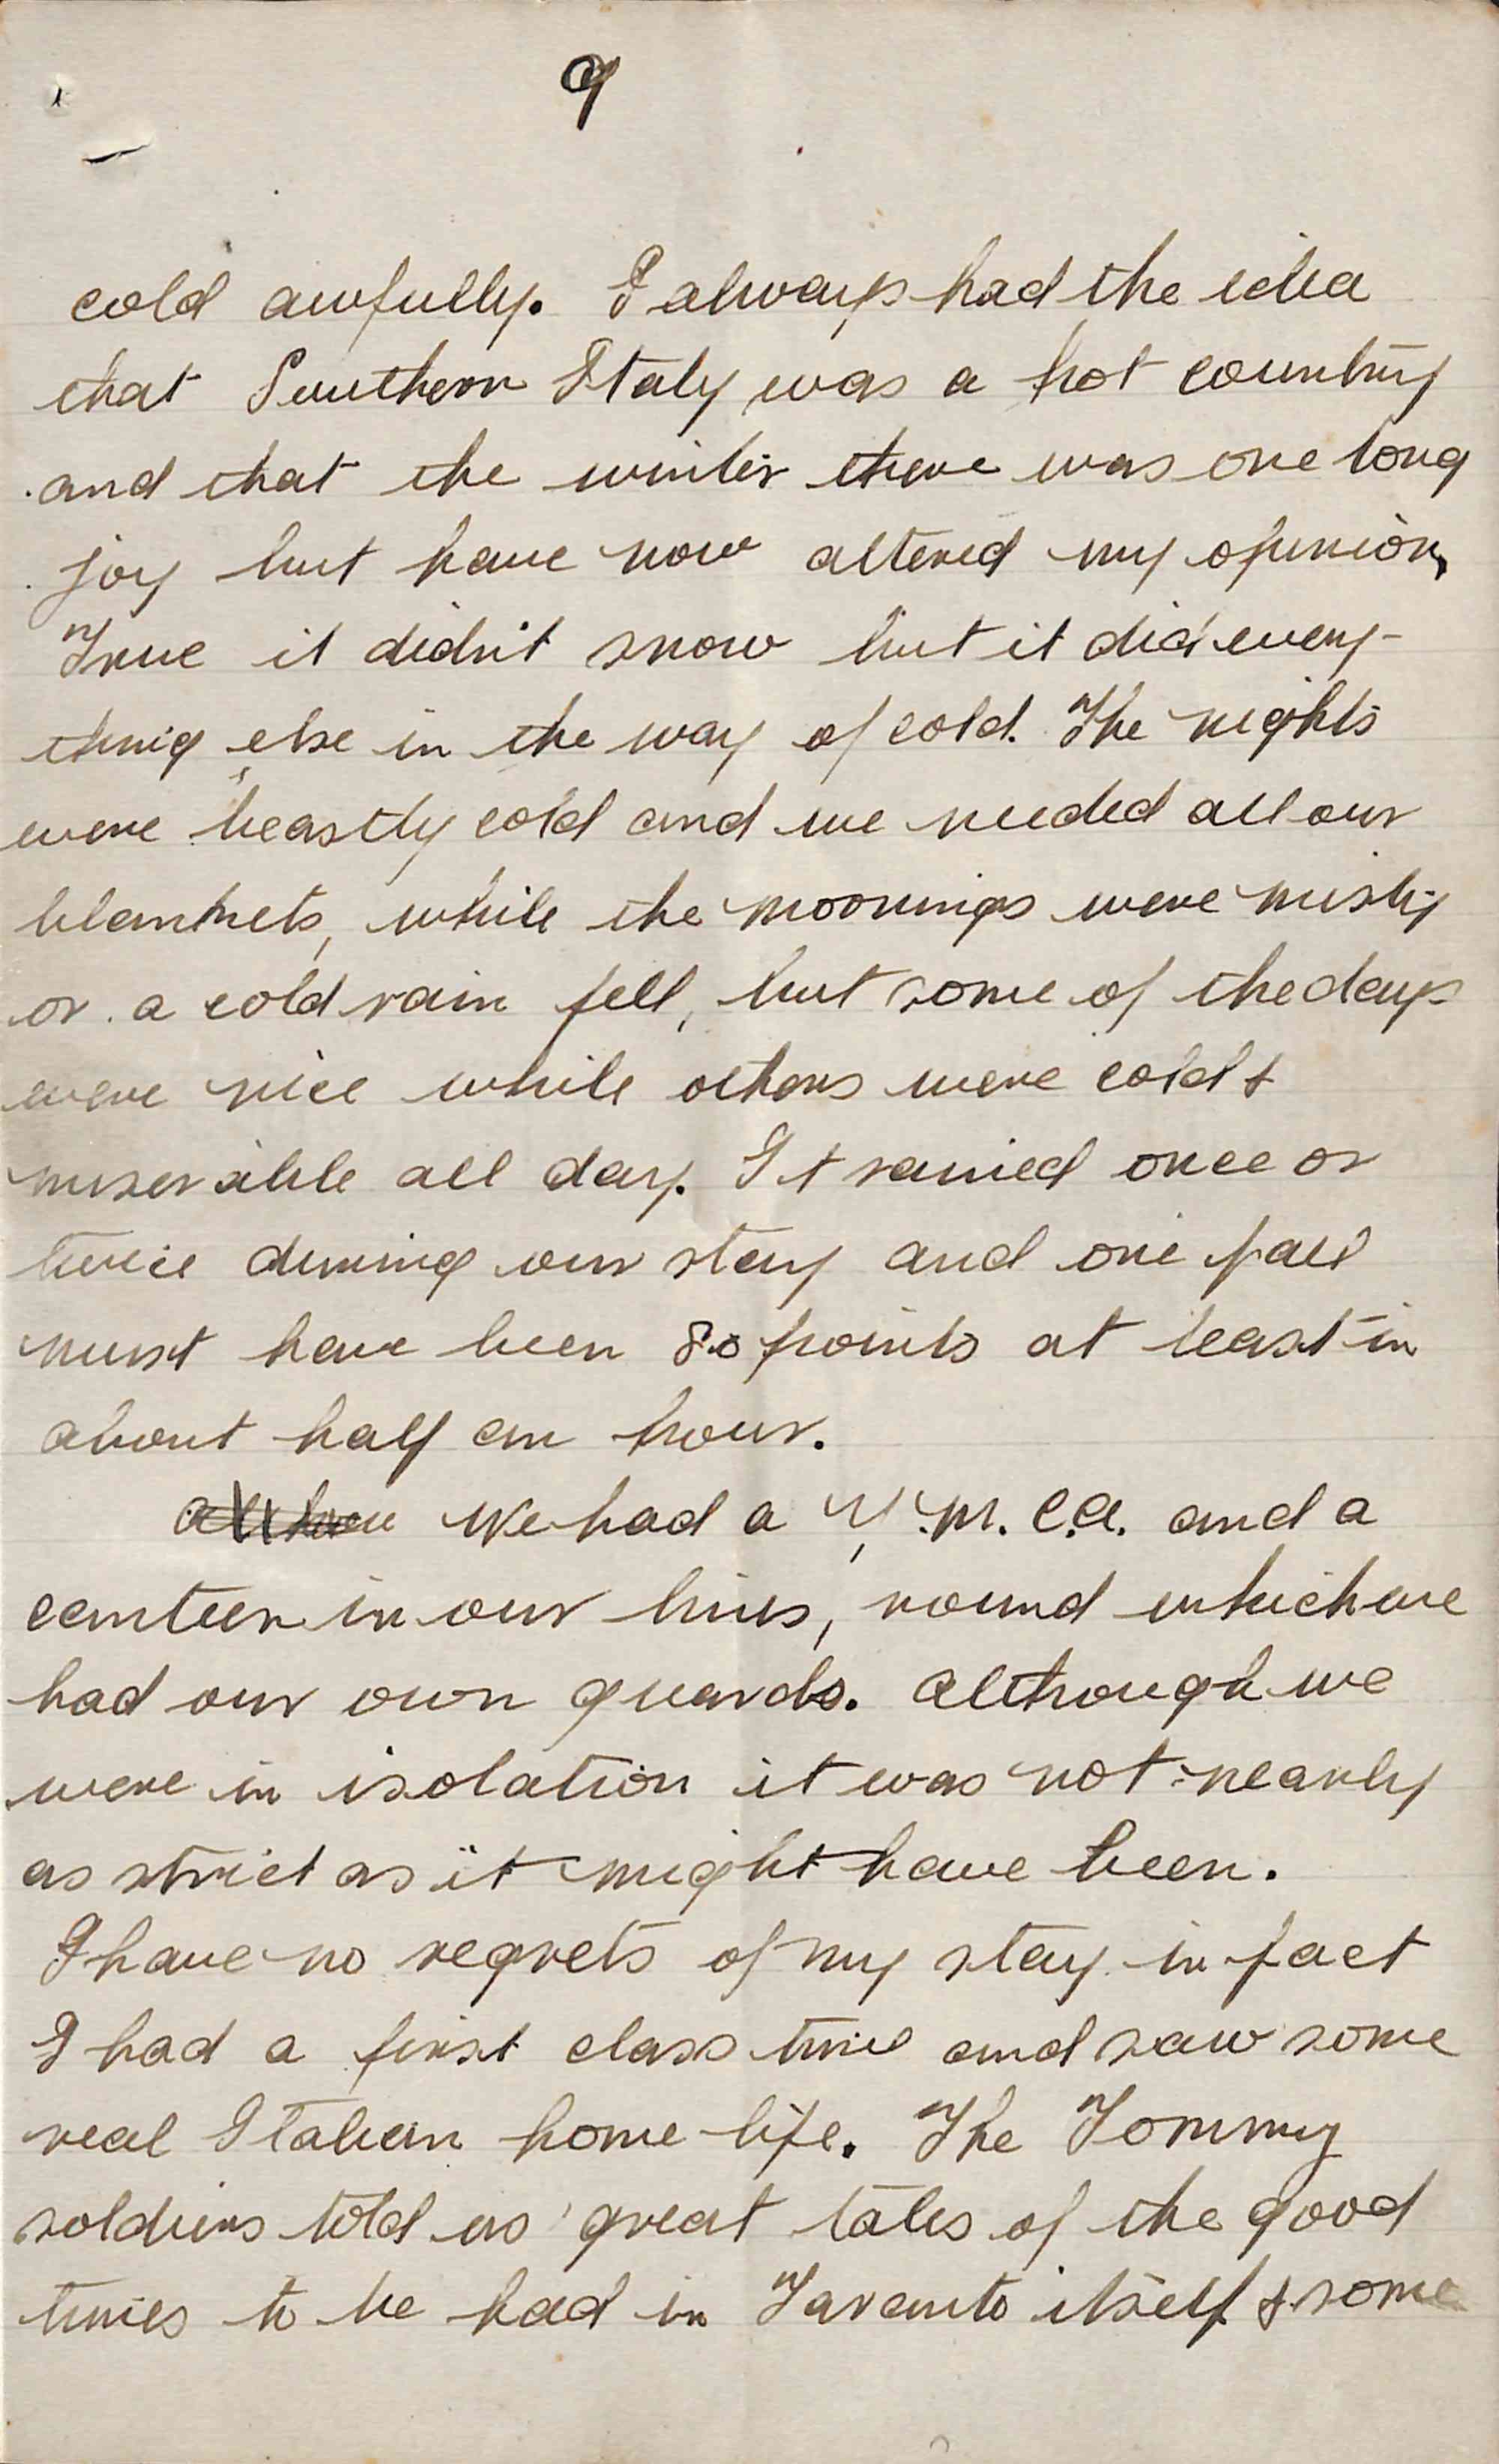 9
cold awfully. I always had the idea
that Southern Italy was a hot country
and that the winter there was one long
joy but have now altered my opinion,
True it didn't snow but it did every-
thing else in the way of cold. The nights
were beastly cold and we needed all our
blankets, while the moornings were misty
or a cold rain fell, but some of the days
were nice while others were cold &
miserable all day. It rained once or
twice during our stay and one fall
must have been 80 points at least in
about half an hour.
We had a Y.M.C.A. and a
canteen in our lines, round which we
had our own guards. Although we
were in isolation it was not nearly
as strict as it might have been.
I have no regrets of my stay in fact
I had a first class time and saw some
real Italian home life. The Tommy
soldiers told us great tales of the good
times to be had in Taranto itself & some